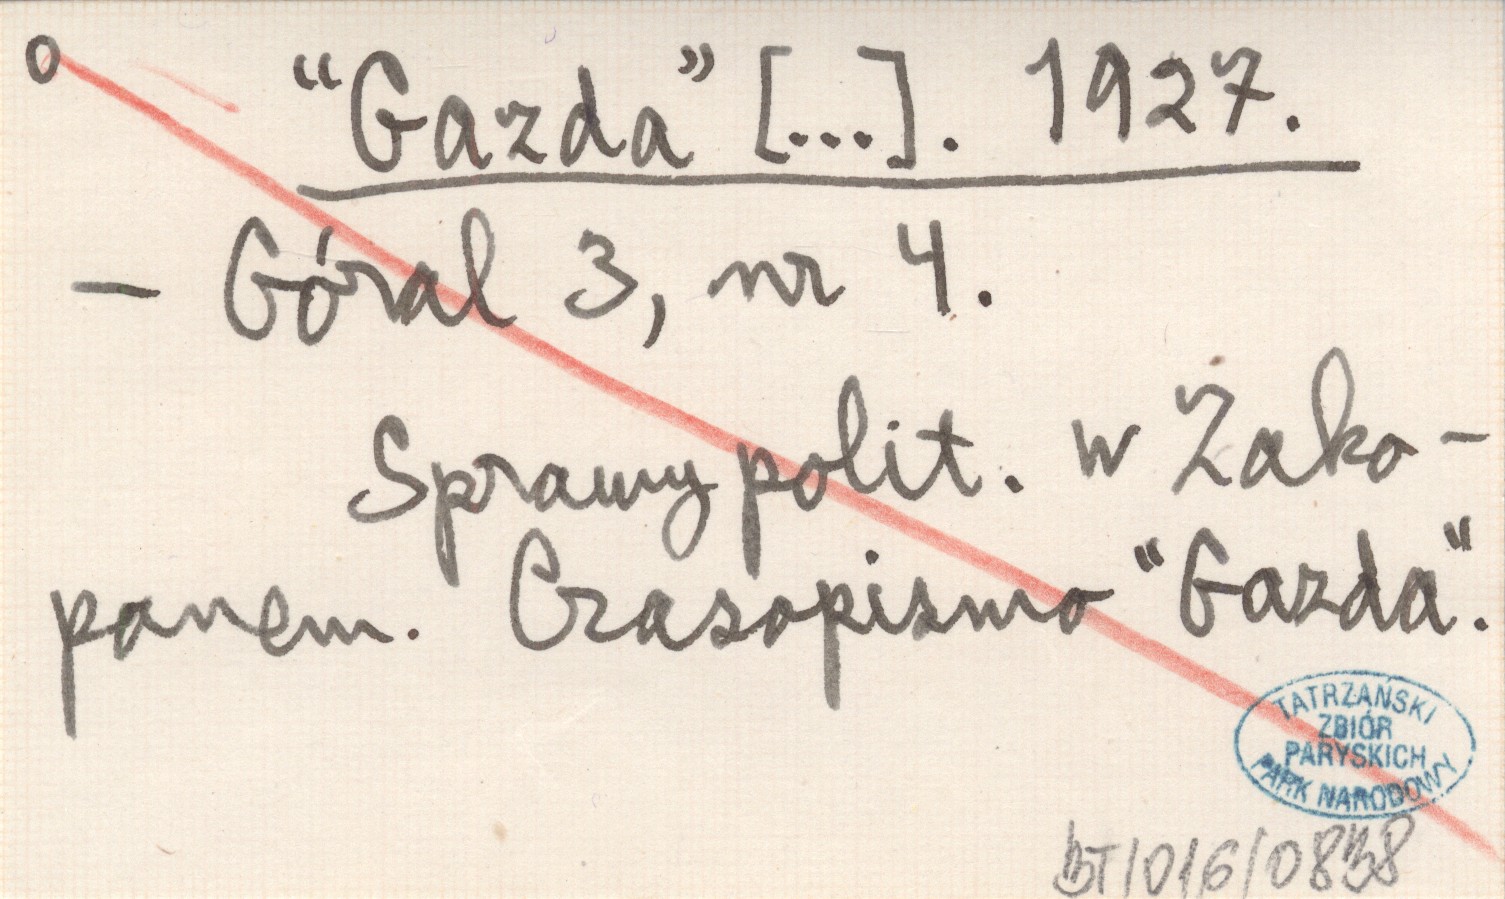 o "Gazda" [...]. 1927.
— Góral 3, nr 4.
Sprawy polit. w Zako-
panem. Czasopismo "Gazda".
TATRZAŃSKI
ZBIÓR
PARYSKICH
PARK NARODOWY
BT/016/0838